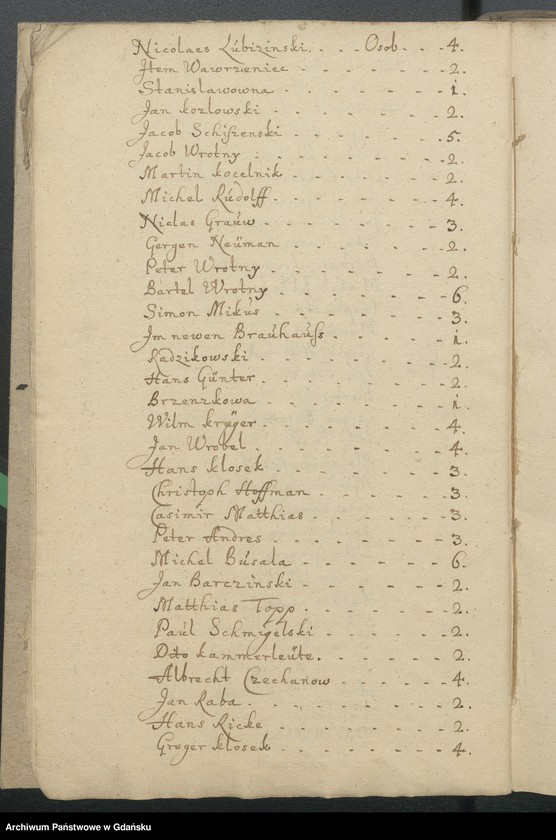 Nicolaes Lubizinski. - - - Osob - - - 4.
Jtem Wawrzeniec - - - - - - 2.
Stanislawowna - - - - - - - 1.
Jan kozlowski - - - - - - - 2.
Jacob Schiszenski - - - - - - 5.
Jacob Wrotny - - - - - - - 2.
Martin kocelnik - - - - - - 2.
Michel Rúdolff - - - - - - - 4.
Niclas Graúw - - - - - - - 3.
Gergen Neúman - - - - - - 2.
Peter Wrotny - - - - - - - 2.
Bartel Wrotny - - - - - - - 6.
Simon Mikús - - - - - - - 3.
Jm newen Braúhaúss - - - - - 1.
Radzikowski - - - - - - - 2.
Hans Günter - - - - - - - 2.
Brzenzkowa - - - - - - - 1.
Wilm krüger - - - - - - - 4.
Jan Wrobel - - - - - - - 4.
Hans klosek - - - - - - - 3.
Christoph Hoffman - - - - - 3.
Casimir Matthias - - - - - - 3.
Peter Andres - - - - - - - 3.
Michel Búsala - - - - - - - 6.
Jan Barczinski - - - - - - 2.
Matthias Topp - - - - - - 2.
Paúl Schmigelski - - - - - - 2.
Dito kammerleúte. - - - - - 2.
Albrecht Czechanow - - - - - 4.
Jan Raba - - - - - - - 2.
Hans Ricke - - - - - - - 2.
Greger klosek - - - - - - 4.
Archiwum Państwowe w Gdańsku